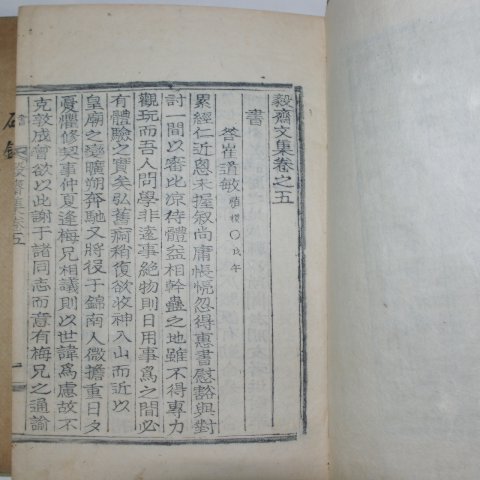 毅齋文集卷之五
書
答崔道敏 戊午
累經仁近恩未握敍尚庸悵慌忽得惠書慰豁與對
討一間以審比凉侍體益相幹蠱之地雖不得專力
觀玩而吾人問學非遠事絶物則日用事爲之間必
有體驗之實矣弘舊痾稍復欲收神入山而近以
皇廟之變曠朔奔馳又將役于錦南人微擔重日夕
憂懼修契事仲夏逢梅兄相議則以世諱爲慮故不
克敦成會欲以此謝于諸同志而意有梅兄之通諭